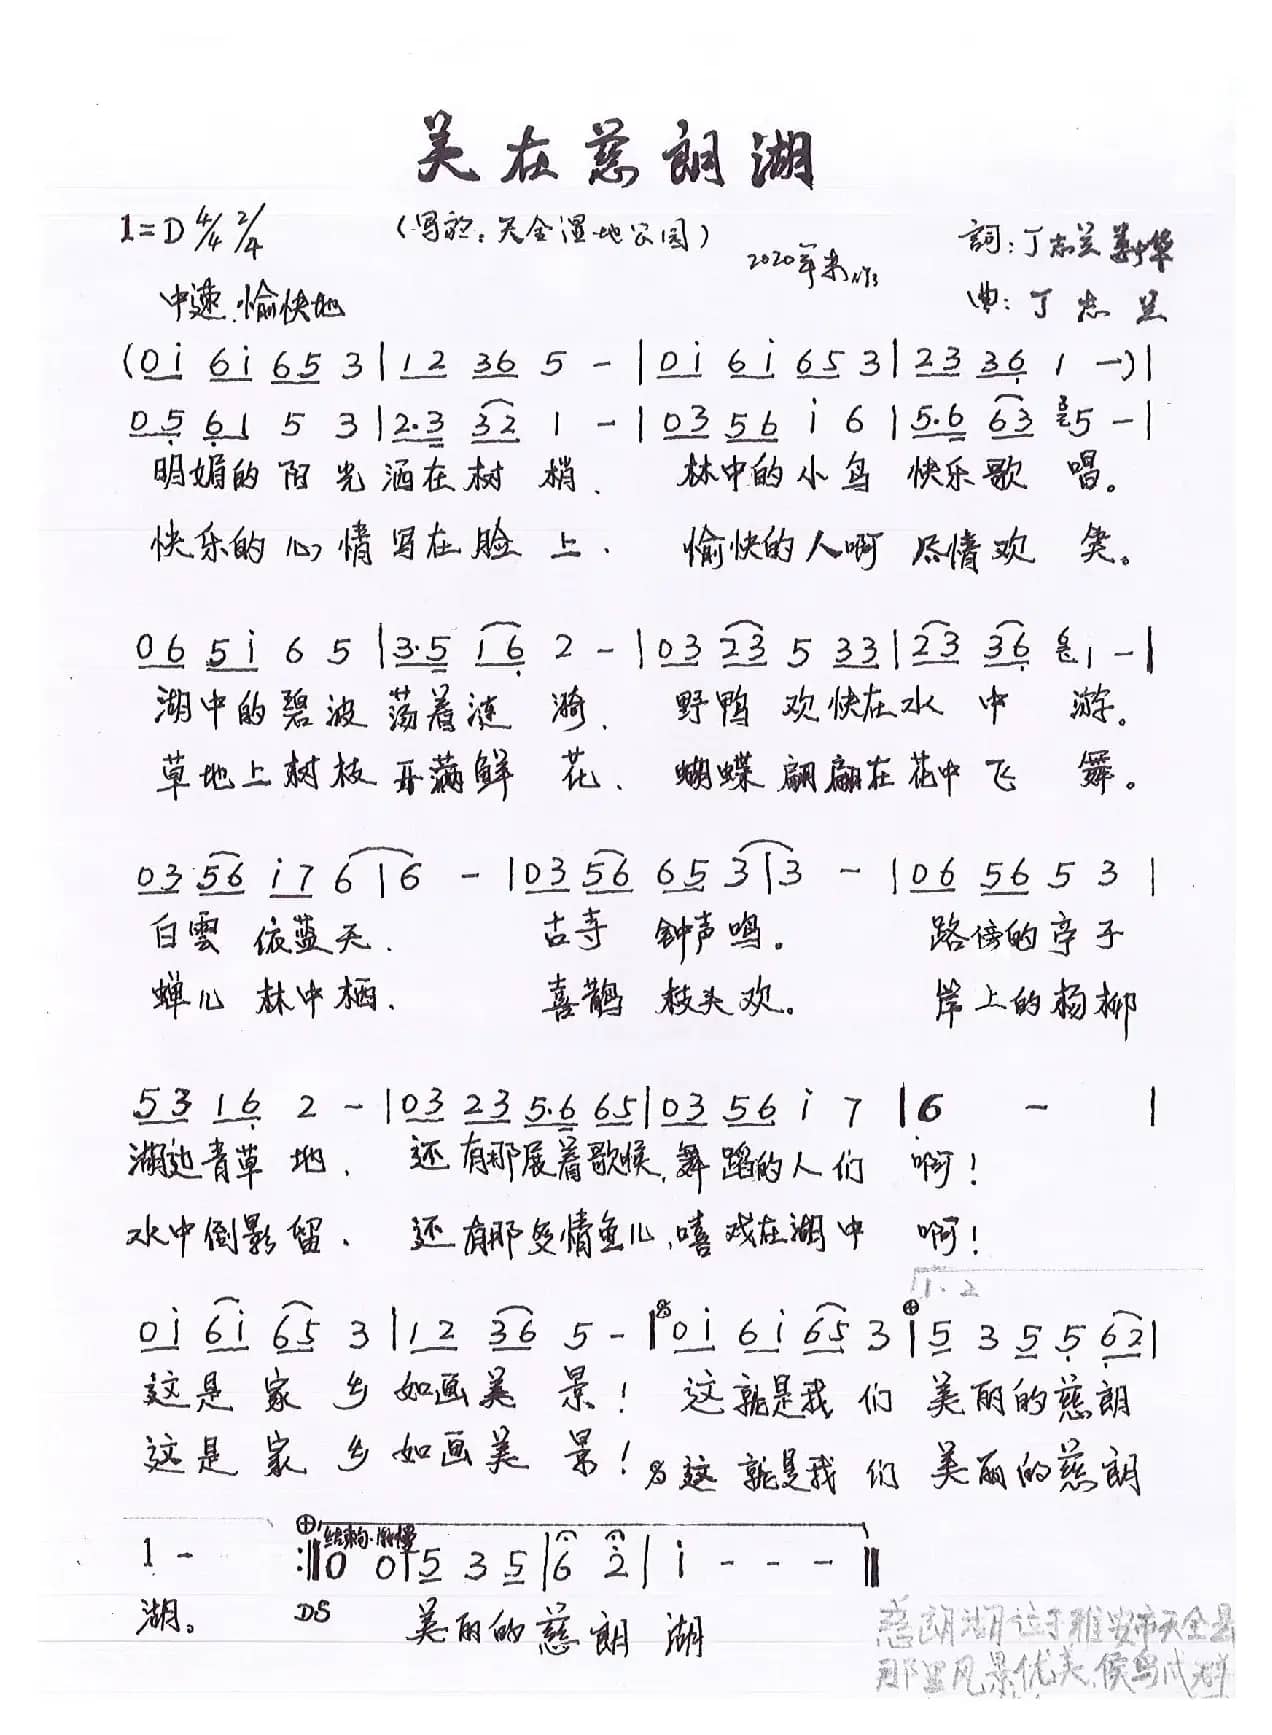 美在慈朗湖
1=D 4/4 2/4
(写于：天全湿地公园)
2020年末作
詞：丁志兰 姜中华
曲：丁志兰
中速.愉快地
(0i 6i 65 3 | 12 36 5 - | 0i 6i 65 3 | 23 36 1 -) |
05 61 5 3 | 2.3 32 1 - | 03 56 i 6 | 5.6 63 5 - |
明媚的阳光洒在树梢、 林中的小鸟快乐歌唱。
快乐的心情写在脸上、 愉快的人啊尽情欢笑。
06 5i 6 5 | 3.5 16 2 - | 03 23 5 33 | 23 36 1 - |
湖中的碧波荡着涟漪、 野鸭欢快在水中游。
草地上树枝开满鲜花、 蝴蝶翩翩在花中飞舞。
03 56 i7 6 | 6 - | 03 56 65 3 | 3 - | 06 56 5 3 |
白雲依蓝天、 古寺钟声鸣。 路傍的亭子
蝉儿林中栖、 喜鹊枝头欢。 岸上的杨柳
53 16 2 - | 03 23 5.6 65 | 03 56 i 7 | 6 - |
湖边青草地、 还有那展着歌喉,舞蹈的人们 啊!
水中倒影留、 还有那多情鱼儿,嘻戏在湖中 啊!
1. 2
0i 6i 65 3 | 12 36 5 - | 0i 6i 65 3 | 5 3 5 5 62 |
这是家乡如画美景! 这就是我们美丽的慈朗
这是家乡如画美景! 这就是我们美丽的慈朗
结束句.渐慢
1 - :‖ 0 0 | 5 3 5 | 6 2 | i - - - ‖
湖。 DS 美丽的慈朗湖
慈朗湖位于雅安市天全县
那里风景优美,候鸟成群